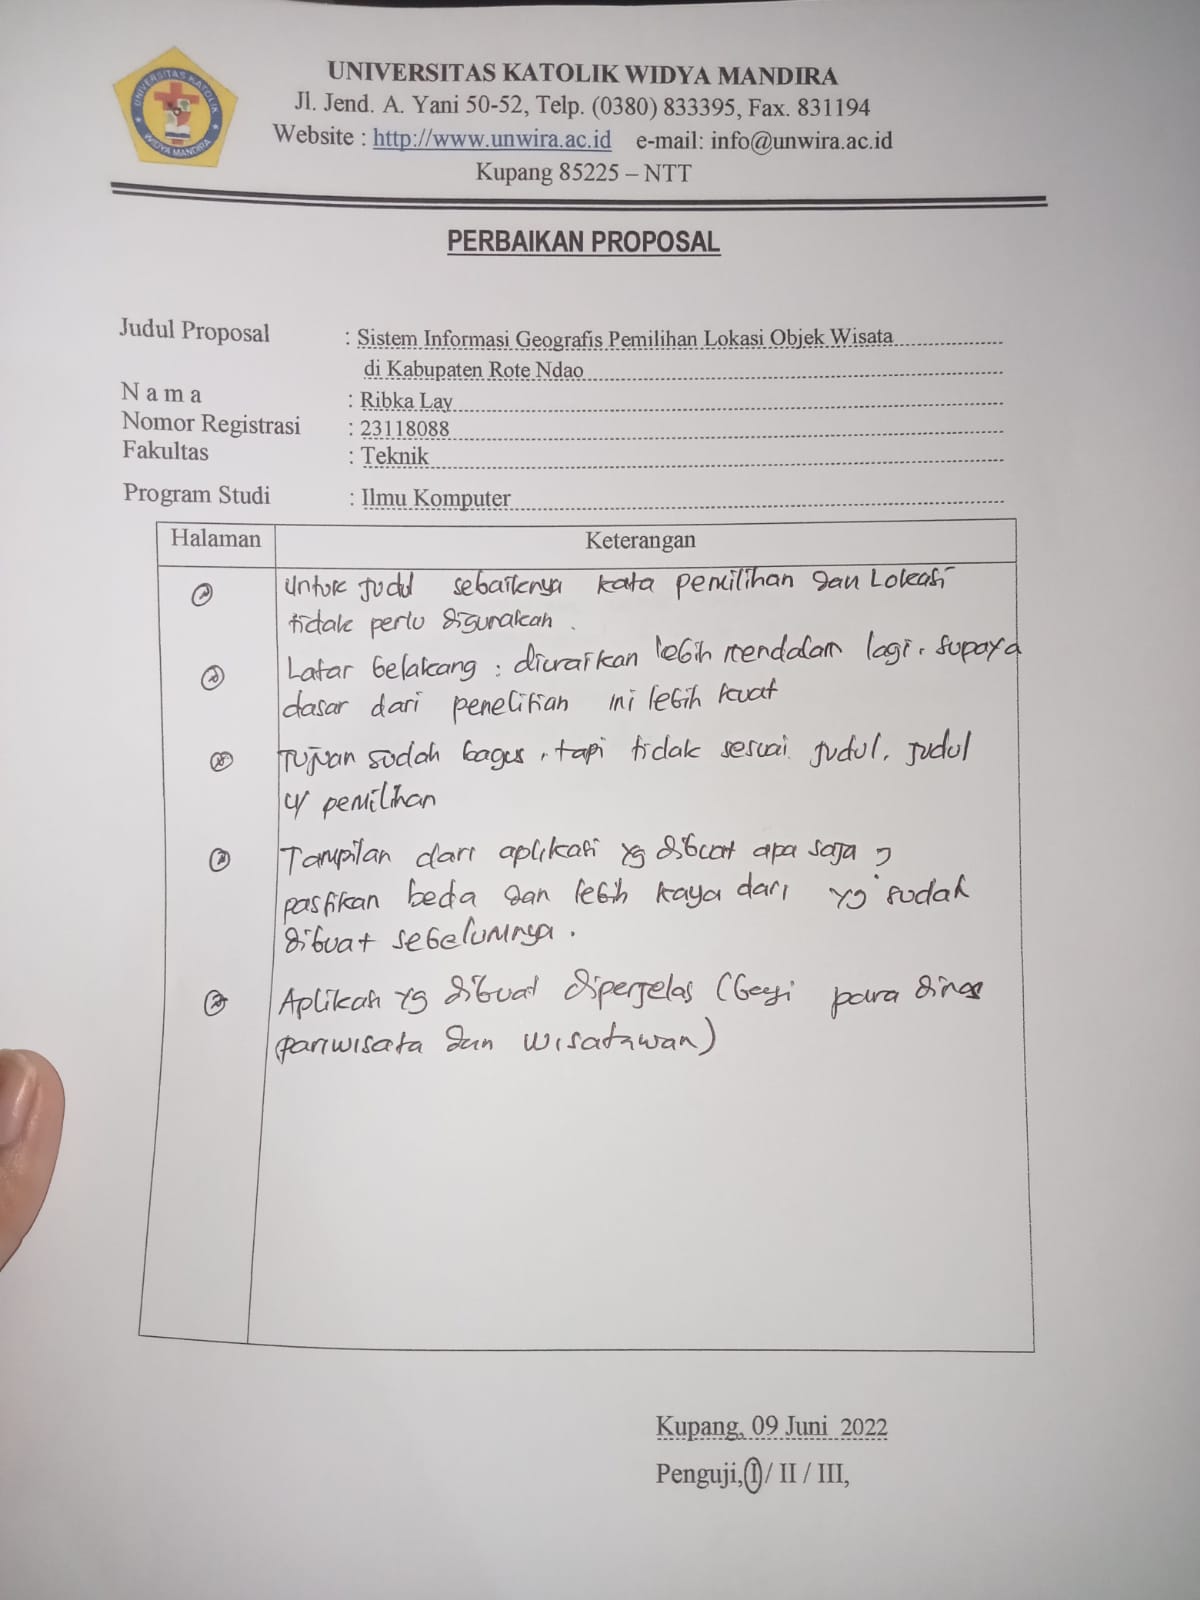 UNIVERSITAS KATOLIK WIDYA MANDIRA
Jl. Jend. A. Yani 50-52, Telp. (0380) 833395, Fax. 831194
Website : http://www.unwira.ac.id e-mail: info@unwira.ac.id
Kupang 85225 – NTT
UNIVERSITAS KATOLIK
WIDYA MANDIRA
PERBAIKAN PROPOSAL
Judul Proposal : Sistem Informasi Geografis Pemilihan Lokasi Objek Wisata
di Kabupaten Rote Ndao
N a m a : Ribka Lay
Nomor Registrasi : 23118088
Fakultas : Teknik
Program Studi : Ilmu Komputer
Halaman Keterangan
Untuk Judul sebaiknya kata pemilihan dan Lokasi
tidak perlu digunakan.
Latar belakang : diuraikan lebih mendalam lagi. supaya
dasar dari penelitian ini lebih kuat
Tujuan sudah bagus, tapi tidak sesuai judul. judul
u/ pemilihan
Tampilan dari aplikasi yg dibuat apa saja ?
pastikan beda dan lebih kaya dari yg sudah
dibuat sebelumnya.
Aplikasi yg dibuat diperjelas (bagi para dinas
pariwisata dan wisatawan)
Kupang, 09 Juni 2022
Penguji, I / II / III,